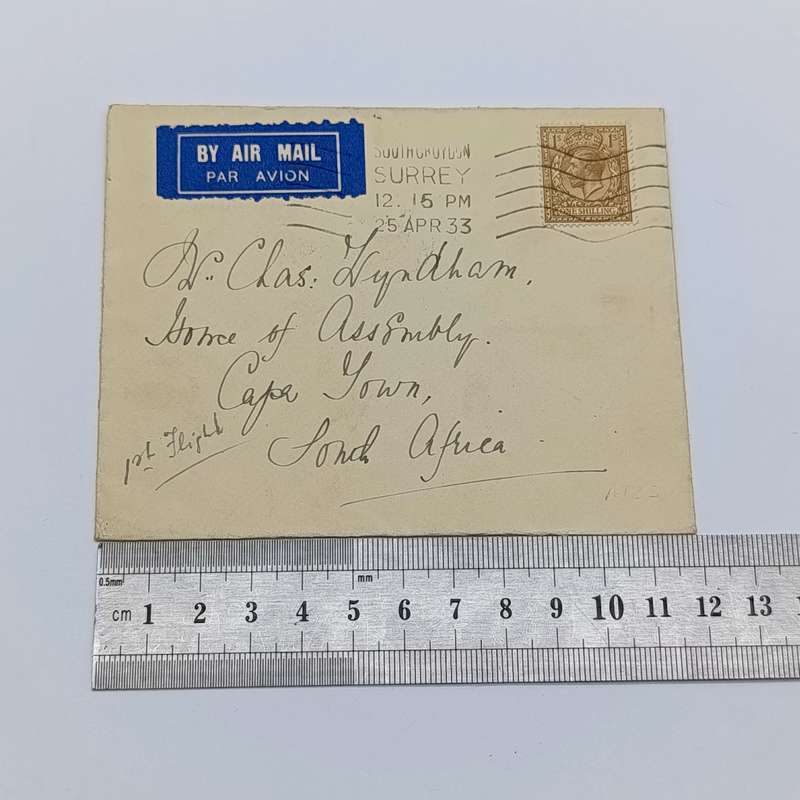 BY AIR MAIL
PAR AVION
SOUTH CROYDON
SURREY
12. 15 PM
25 APR 33
1S 1S
ONE SHILLING
Dr. Chas: Wyndham,
House of Assembly.
Cape Town,
South Africa
1st Flight
0.5mm
mm
cm 1 2 3 4 5 6 7 8 9 10 11 12 13